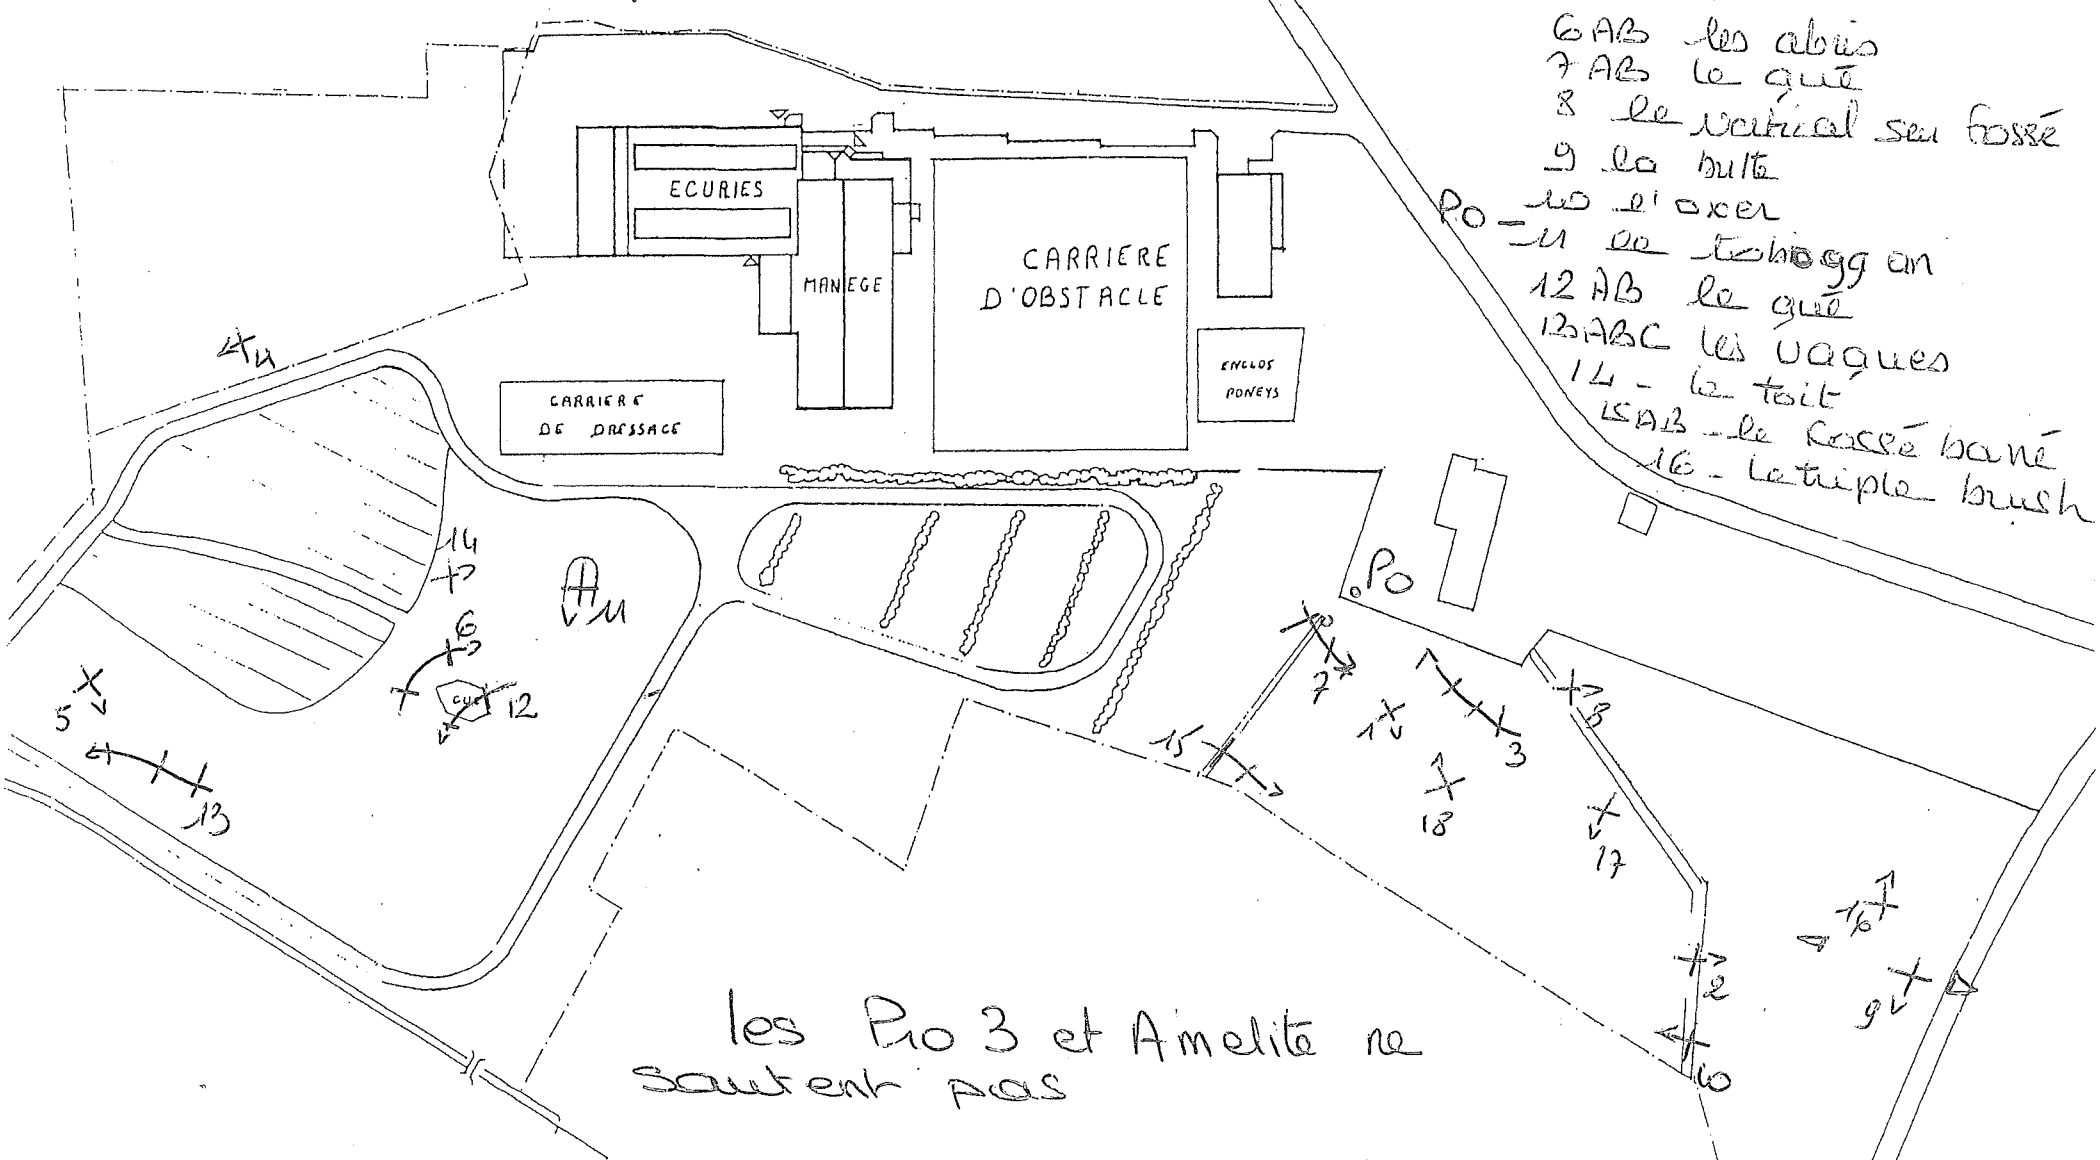 6AB les abris
7AB le gué
8 le vertical sur fossé
9 la butte
10 l'oxer
PO - 11 le toboggan
12 AB le gué
13ABC les vagues
14 - le toit
15AB - le fossé barré
16 - le triple brush
ECURIES
MANEGE
CARRIERE
D'OBSTACLE
ENCLOS
PONEYS
CARRIERE
DE DRESSAGE
14
6
11
GUE
12
5
13
.PO
7
1
3
8
15
18
17
16
2
9
10
les Pro 3 et Amelite ne
sautent pas